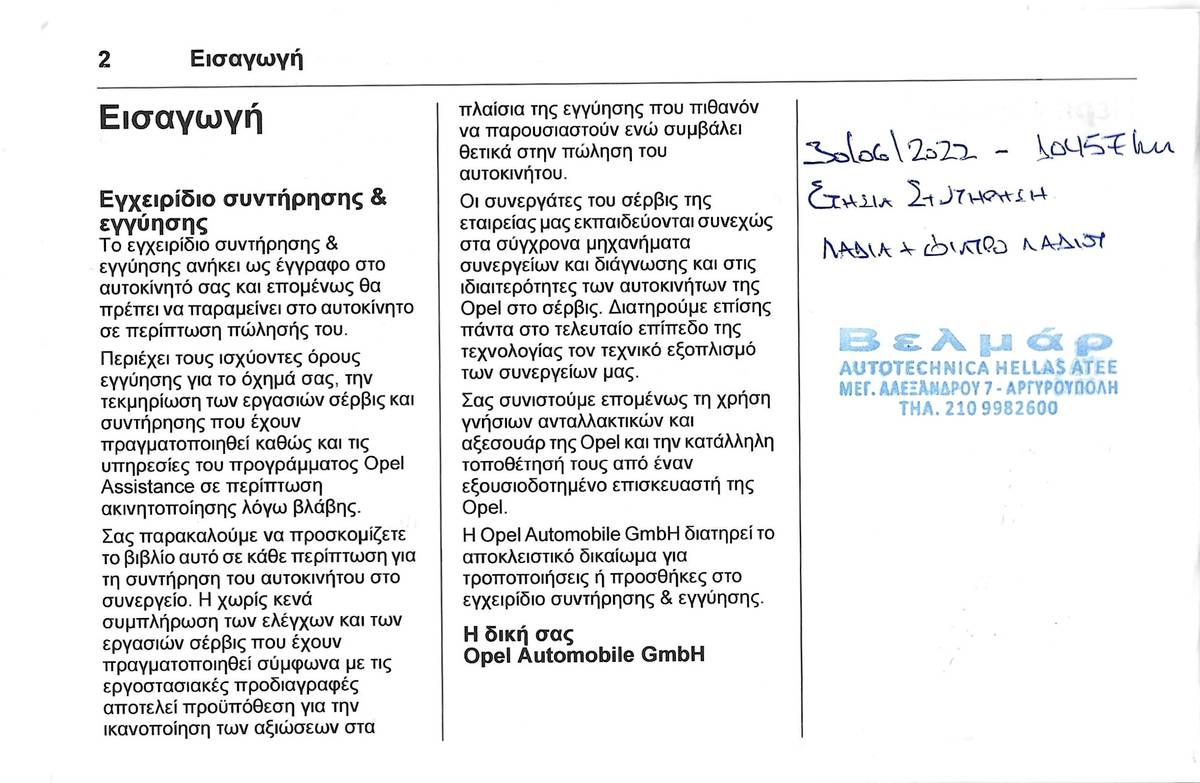 2 Εισαγωγή
Εισαγωγή
Εγχειρίδιο συντήρησης &
εγγύησης
Το εγχειρίδιο συντήρησης &
εγγύησης ανήκει ως έγγραφο στο
αυτοκίνητό σας και επομένως θα
πρέπει να παραμείνει στο αυτοκίνητο
σε περίπτωση πώλησής του.
Περιέχει τους ισχύοντες όρους
εγγύησης για το όχημά σας, την
τεκμηρίωση των εργασιών σέρβις και
συντήρησης που έχουν
πραγματοποιηθεί καθώς και τις
υπηρεσίες του προγράμματος Opel
Assistance σε περίπτωση
ακινητοποίησης λόγω βλάβης.
Σας παρακαλούμε να προσκομίζετε
το βιβλίο αυτό σε κάθε περίπτωση για
τη συντήρηση του αυτοκινήτου στο
συνεργείο. Η χωρίς κενά
συμπλήρωση των ελέγχων και των
εργασιών σέρβις που έχουν
πραγματοποιηθεί σύμφωνα με τις
εργοστασιακές προδιαγραφές
αποτελεί προϋπόθεση για την
ικανοποίηση των αξιώσεων στα
πλαίσια της εγγύησης που πιθανόν
να παρουσιαστούν ενώ συμβάλει
θετικά στην πώληση του
αυτοκινήτου.
Οι συνεργάτες του σέρβις της
εταιρείας μας εκπαιδεύονται συνεχώς
στα σύγχρονα μηχανήματα
συνεργείων και διάγνωσης και στις
ιδιαιτερότητες των αυτοκινήτων της
Opel στο σέρβις. Διατηρούμε επίσης
πάντα στο τελευταίο επίπεδο της
τεχνολογίας τον τεχνικό εξοπλισμό
των συνεργείων μας.
Σας συνιστούμε επομένως τη χρήση
γνήσιων ανταλλακτικών και
αξεσουάρ της Opel και την κατάλληλη
τοποθέτησή τους από έναν
εξουσιοδοτημένο επισκευαστή της
Opel.
Η Opel Automobile GmbH διατηρεί το
αποκλειστικό δικαίωμα για
τροποποιήσεις ή προσθήκες στο
εγχειρίδιο συντήρησης & εγγύησης.
Η δική σας
Opel Automobile GmbH
30/06/2022 - 10457km
ΕΤΗΣΙΑ ΣΥΝΤΗΡΗΣΗ
ΛΑΔΙΑ + ΦΙΛΤΡΟ ΛΑΔΙΟΥ
Βελμάρ
AUTOTECHNICA HELLAS ATEE
ΜΕΓ. ΑΛΕΞΑΝΔΡΟΥ 7 - ΑΡΓΥΡΟΥΠΟΛΗ
ΤΗΛ. 210 9982600